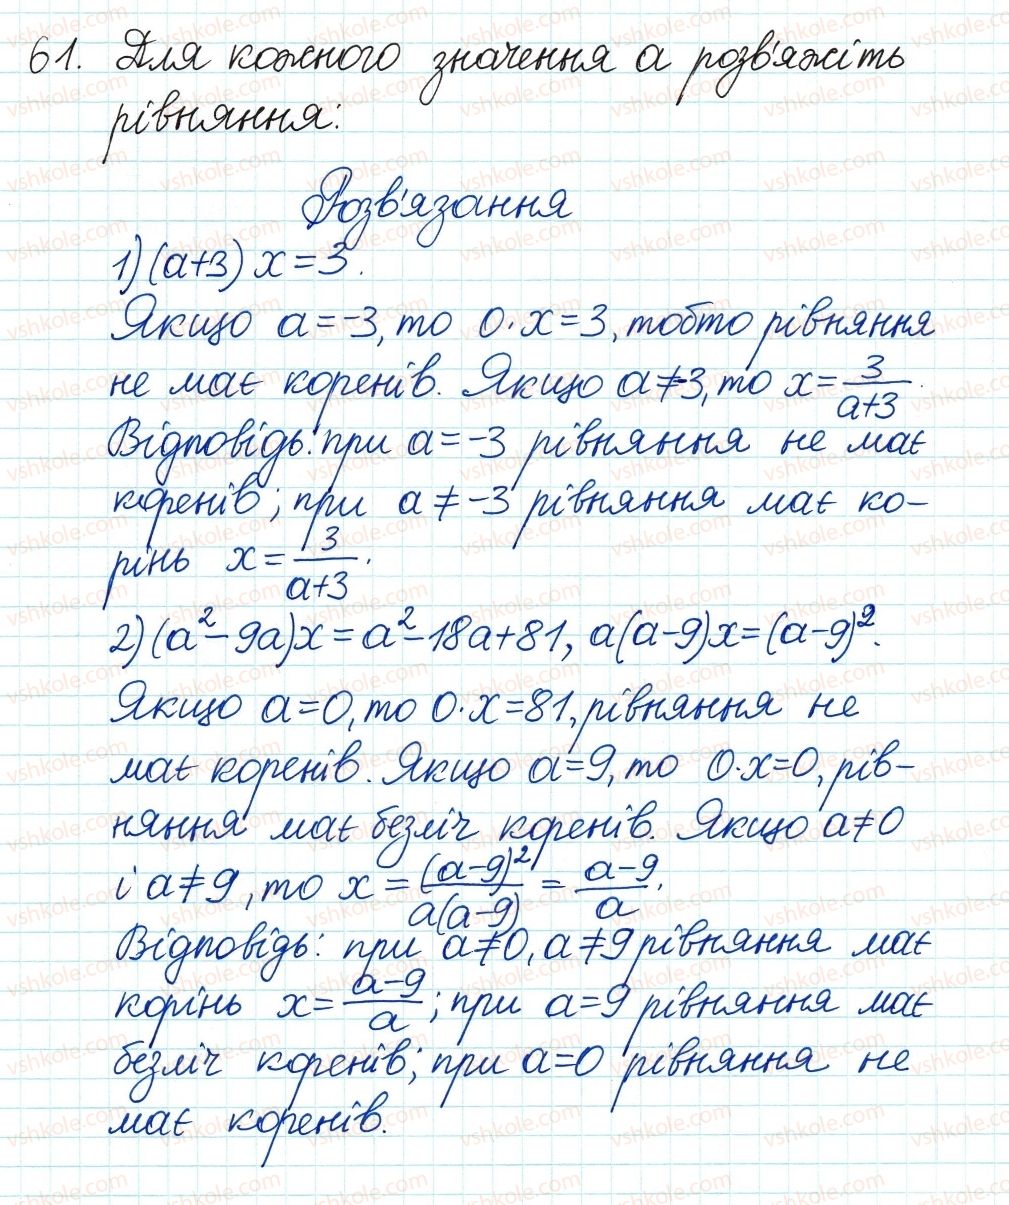 61. Для кожного значення a розв'яжіть
рівняння:
Розв'язання
1) (a+3) x = 3.
Якщо a = -3, то 0·x = 3, тобто рівняння
не має коренів. Якщо a ≠ -3, то x = 3/(a+3).
Відповідь: при a = -3 рівняння не має
коренів; при a ≠ -3 рівняння має ко-
рінь x = 3/(a+3).
2) (a² - 9a)x = a² - 18a + 81, a(a-9)x = (a-9)².
Якщо a = 0, то 0·x = 81, рівняння не
має коренів. Якщо a = 9, то 0·x = 0, рів-
няння має безліч коренів. Якщо a ≠ 0
і a ≠ 9, то x = (a-9)²/(a(a-9)) = (a-9)/a.
Відповідь: при a ≠ 0, a ≠ 9 рівняння має
корінь x = (a-9)/a; при a = 9 рівняння має
безліч коренів; при a = 0 рівняння не
має коренів.